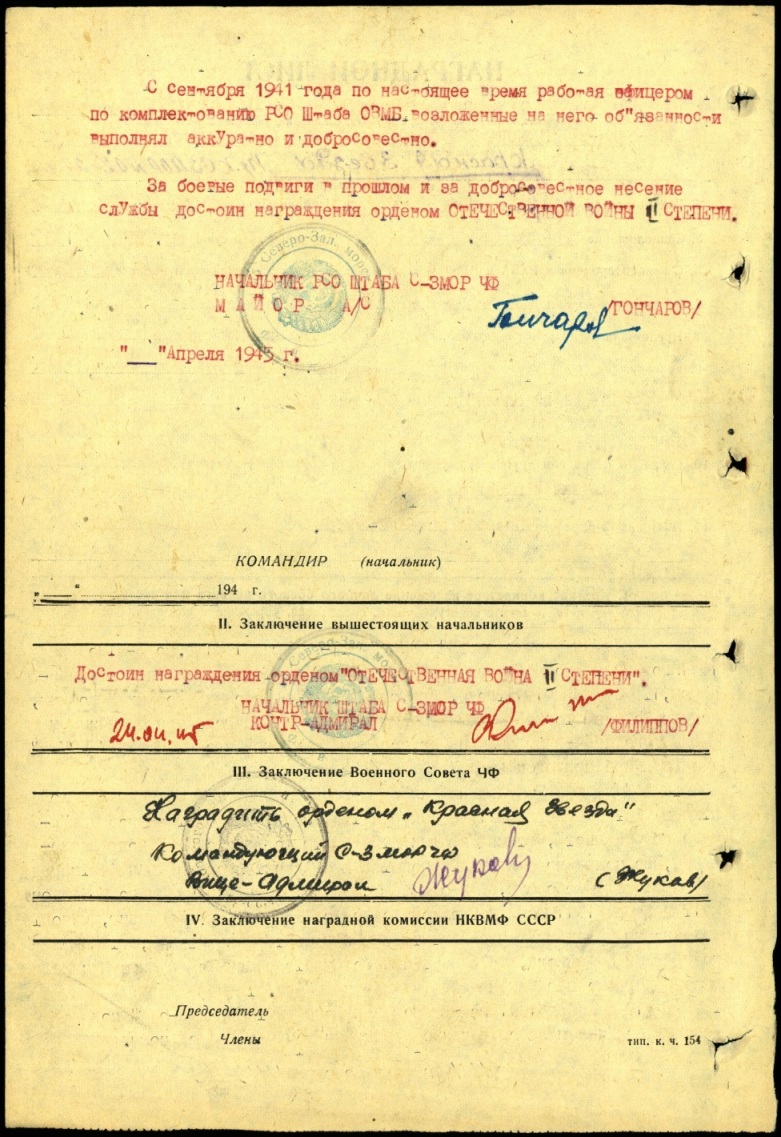 С сентября 1941 года по настоящее время работая офицером
по комплектованию РСО Штаба ОВМБ возложенные на него об"язанности
выполнял аккуратно и добросовестно.
За боевые подвиги в прошлом и за добросовестное несение
службы достоин награждения орденом ОТЕЧЕСТВЕННОЙ ВОЙНЫ II СТЕПЕНИ.
Северо-Зап. морс
НАЧАЛЬНИК РСО ШТАБА С-ЗМОР ЧФ
МАЙОР А/С Гончаров /ГОНЧАРОВ/
"__"Апреля 1945 г.
КОМАНДИР (начальник)
„___" 194 г.
II. Заключение вышестоящих начальников
Достоин награждения орденом"ОТЕЧЕСТВЕННАЯ ВОЙНА II СТЕПЕНИ".
НАЧАЛЬНИК ШТАБА С-ЗМОР ЧФ
КОНТР-АДМИРАЛ /ФИЛИППОВ/
III. Заключение Военного Совета ЧФ
Наградить орденом „Красная Звезда"
Командующий С-ЗМОР ЧФ
Вице-Адмирал Жуков (Жуков)
IV. Заключение наградной комиссии НКВМФ СССР
Председатель
Члены
тип. к. ч. 154